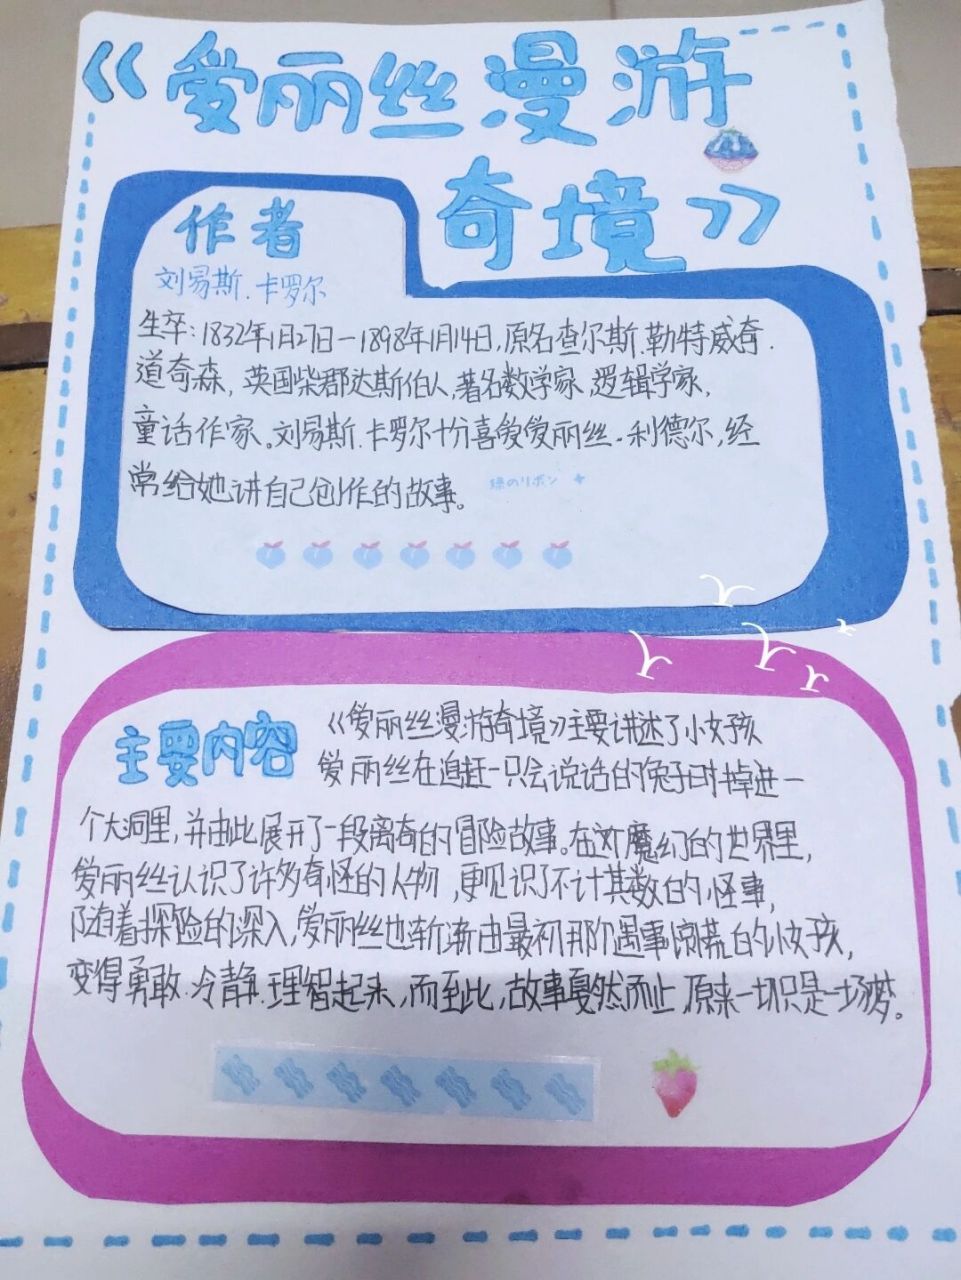 《爱丽丝漫游
奇境》
作者
刘易斯.卡罗尔
生卒:1832年1月27日—1898年1月14日,原名查尔斯.勒特威奇.
道奇森,英国柴郡达斯伯人,著名数学家,逻辑学家,
童话作家。刘易斯.卡罗尔十分喜爱爱丽丝.利德尔,经
常给她讲自己创作的故事。
緑のリボン
主要内容
《爱丽丝漫游奇境》主要讲述了小女孩
爱丽丝在追赶一只会说话的兔子时掉进一
个大洞里,并由此展开了一段离奇的冒险故事。在这个魔幻的世界里,
爱丽丝认识了许多奇怪的人物,更见识了不计其数的怪事,
随着探险的深入,爱丽丝也渐渐由最初那个遇事惊慌的小女孩,
变得勇敢.冷静.理智起来,而至此,故事戛然而止,原来一切只是一场梦。